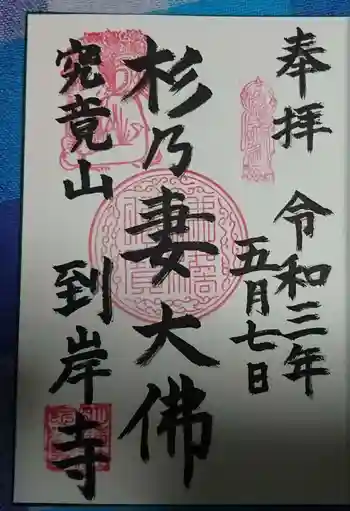 奉拝
令和三年
五月七日
杉乃妻大佛
究竟山
到岸寺